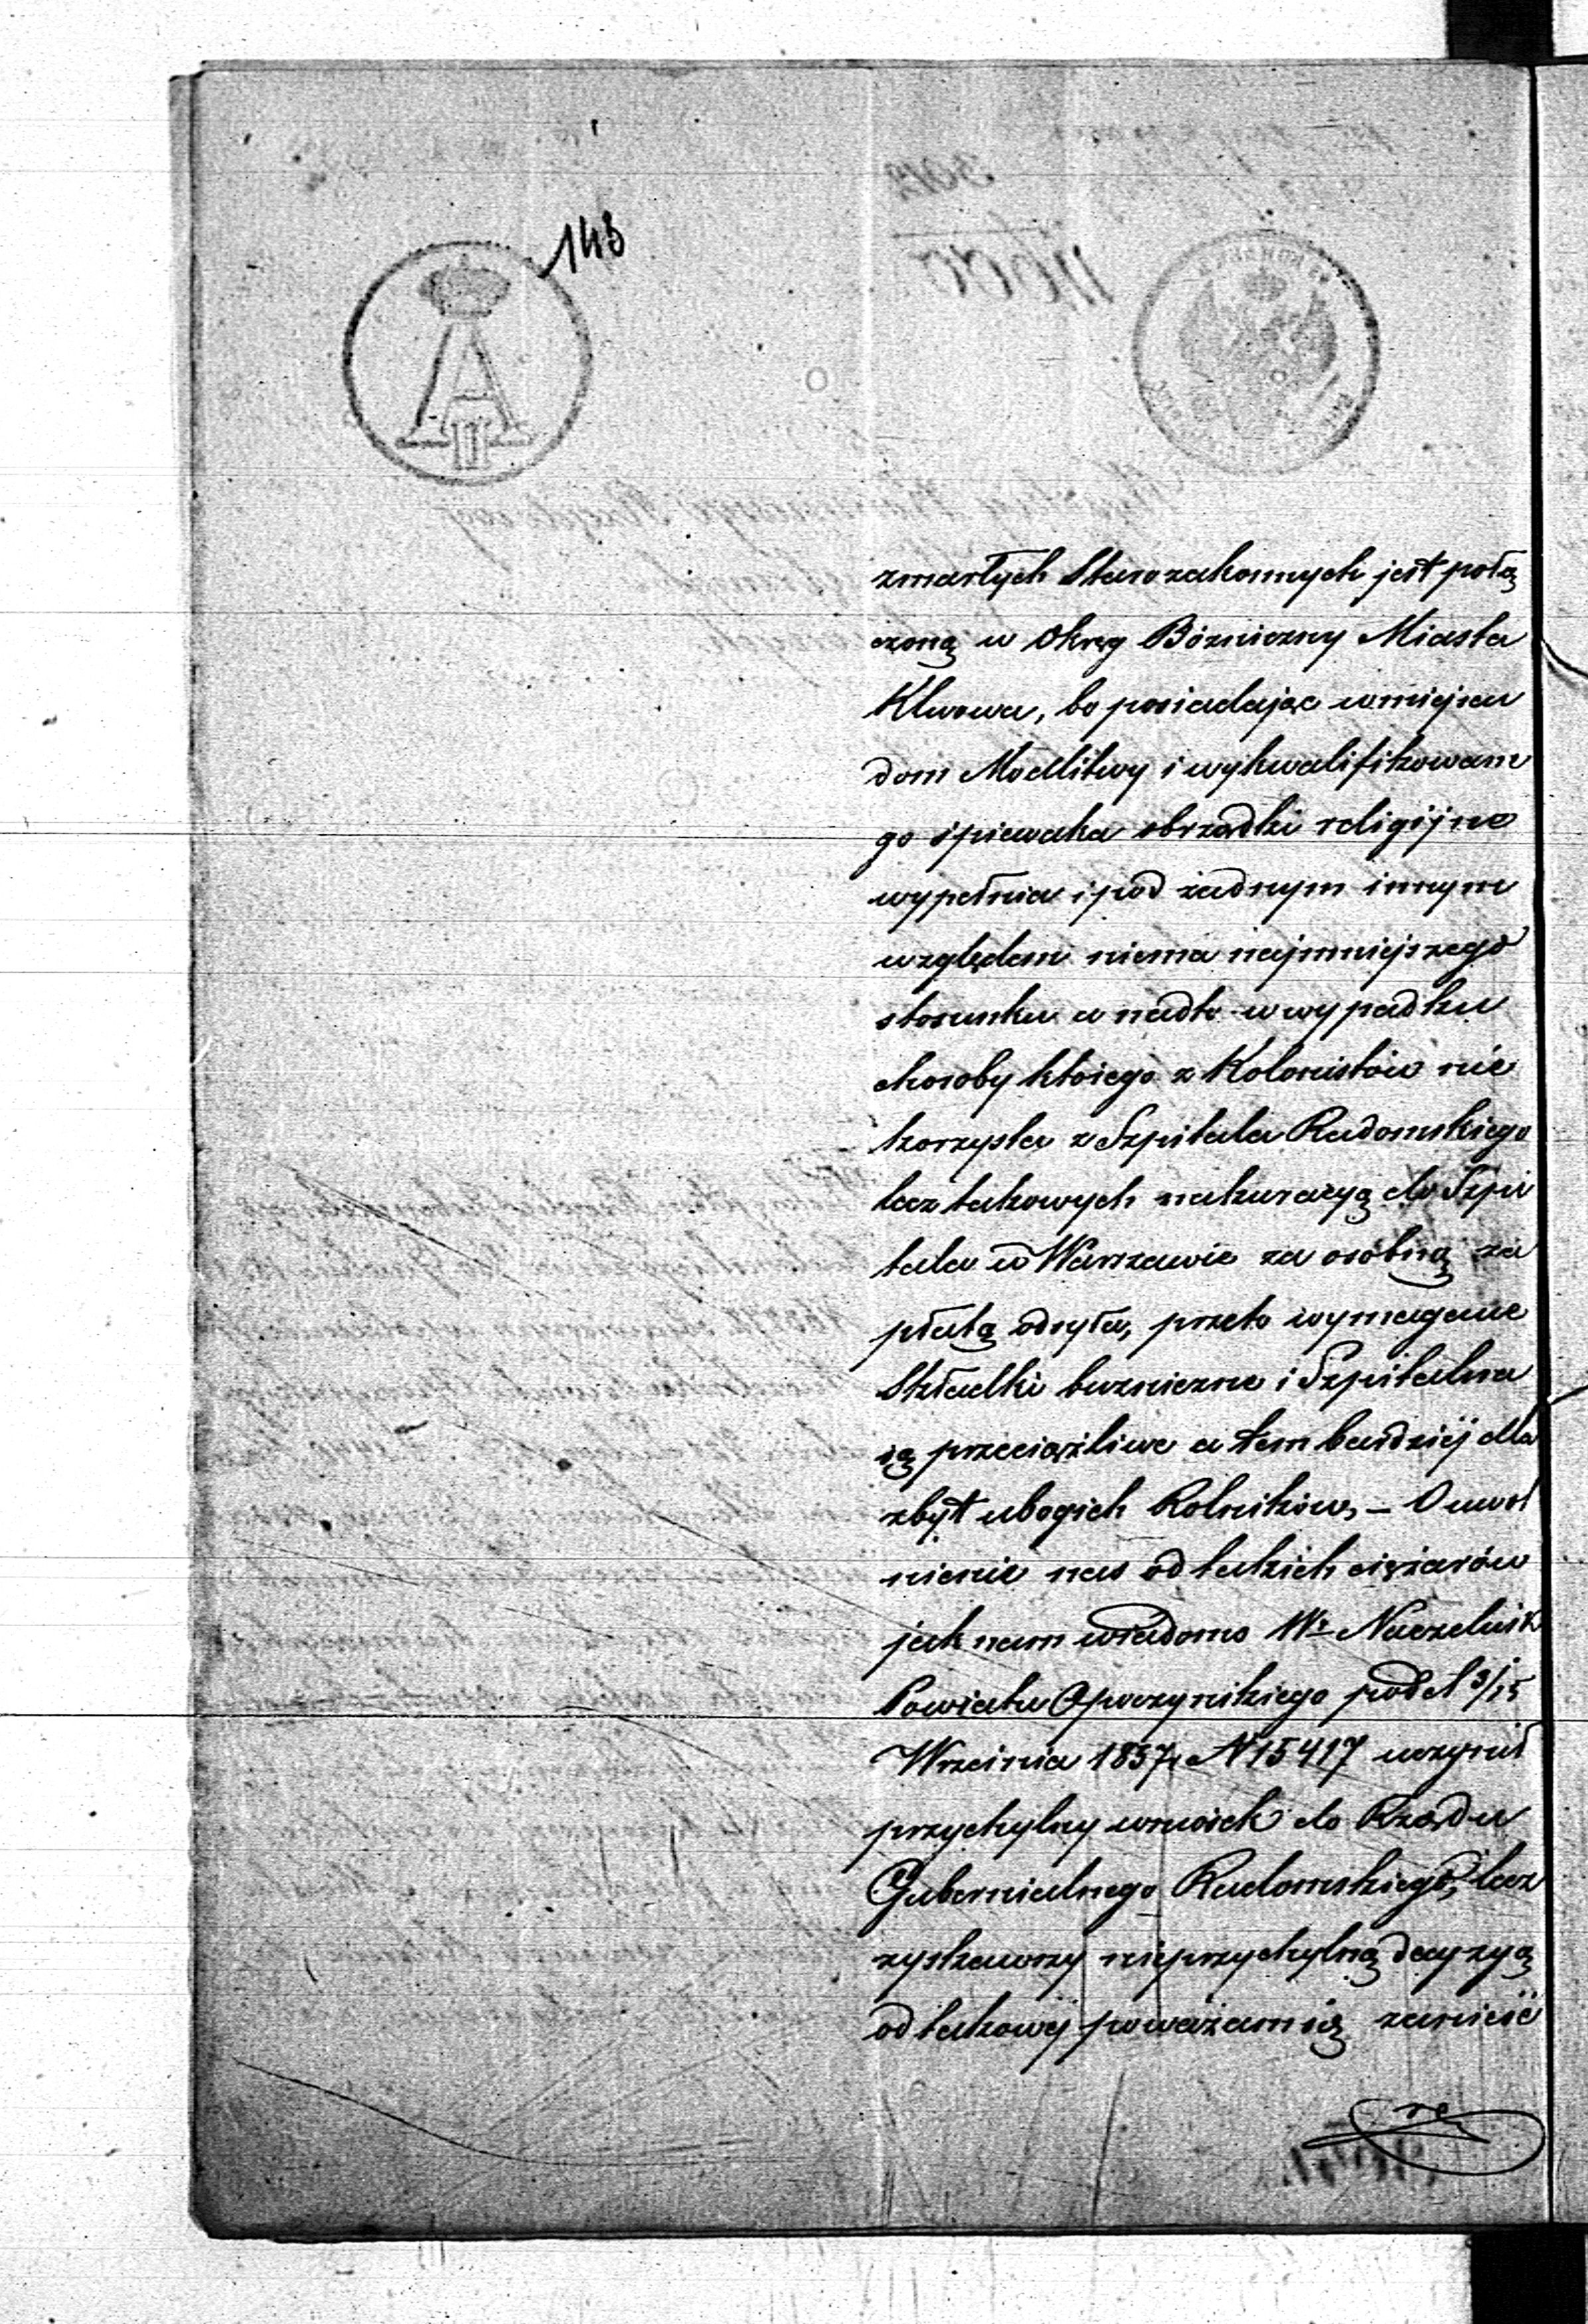 143
A
II
zmarłych Starozakonnych jest połą
czoną w Okrąg Bózniczny Miasta
Klwowa, bo posiadając w miejscu
dom Modlitwy i wykwalifikowane
go spiewaka obrządki religijne
wypełnia i pod żadnym innym
względem niema najmniejszego
stosunku a nadto w wypadku
choroby którego z Kolonistów nie
korzysta z Szpitala Radomskiego
lecz takowych na kuracyą do Szpi
tala w Warszawie za osóbną za
płatą odsyła, przeto wymagane
Składki bużniczne i Szpitalna
są przeciążliwe a tem bardziéj dla
zbyt ubogich Rolników, – O uwol
nienie nas od takich ciężarów
jak nam wiadomo Wy Naczelnik
Powiatu Opoczyńskiego pod d 3/15
Września 1857 r N 15417 uczynił
przychylny wniosek do Rządu
Gubernialnego Radomskiego, lecz
zyskawszy nieprzychylną decyzyą
od takowéj poważamy się zanieść